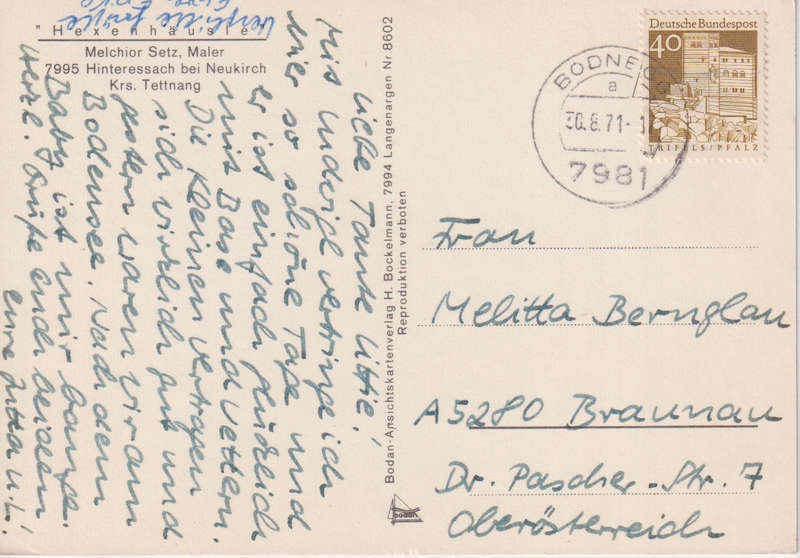 "Hexenhäusle"
Melchior Setz, Maler
7995 Hinteressach bei Neukirch
Krs. Tettnang
Liebe Tante Litzie,
Mit Ludwig verbringe ich
hier so schöne Tage und
er ist einfach glücklich
mit Base und Vettern.
Die Kleinen vertragen
sich wirklich gut und
gestern waren wir am
Bodensee. Nach dem
Baby ist mir bange.
Herzl. Grüße euch beiden
eure Jutta u. L.
Bodan-Ansichtskartenverlag H. Bockelmann, 7994 Langenargen Nr 8602
Reproduktion verboten
bodan
Deutsche Bundespost
40
TRIFELS/PFALZ
BODNEGG
a
30.8.71-
7981
Frau
Melitta Bernglau
A5280 Braunau
Dr. Pascher-Str. 7
Oberösterreich